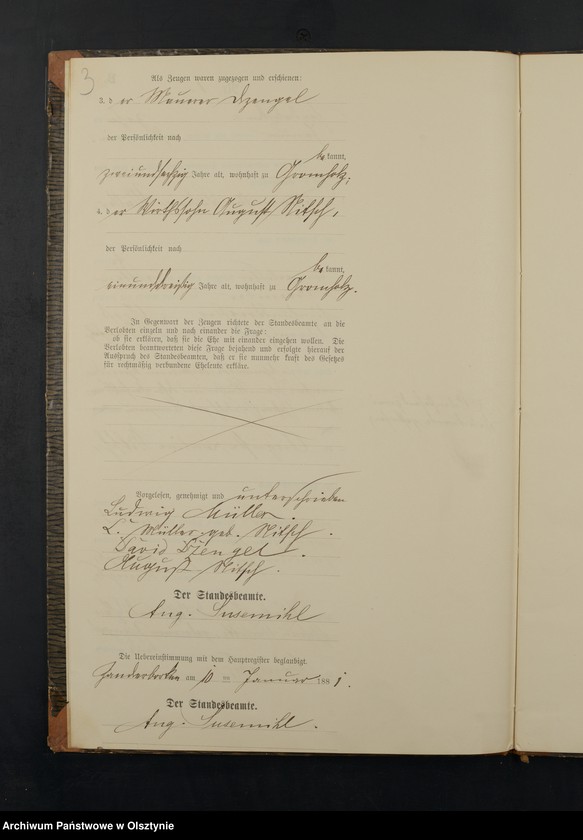 3
Als Zeugen waren zugezogen und erschienen:
3. der Maurer Dzengel
der Persönlichkeit nach
be kannt,
zweiundsechzig Jahre alt, wohnhaft zu Gronholz;
4. der Wirthssohn August Nitsch,
der Persönlichkeit nach
be kannt,
einunddreißig Jahre alt, wohnhaft zu Gronholz.
In Gegenwart der Zeugen richtete der Standesbeamte an die
Verlobten einzeln und nach einander die Frage:
ob sie erklären, daß sie die Ehe mit einander eingehen wollen. Die
Verlobten beantworteten diese Frage bejahend und erfolgte hierauf der
Ausspruch des Standesbeamten, daß er sie nunmehr kraft des Gesetzes
für rechtmäßig verbundene Eheleute erkläre.
Vorgelesen, genehmigt und unterschrieben
Ludwig Müller.
L. Müller geb. Nitsch.
David Dzengel.
August Nitsch.
Der Standesbeamte.
Aug. Susemihl
Die Uebereinstimmung mit dem Hauptregister beglaubigt.
am 10 ten Januar 1881.
Der Standesbeamte.
Aug. Susemihl.
Archiwum Państwowe w Olsztynie